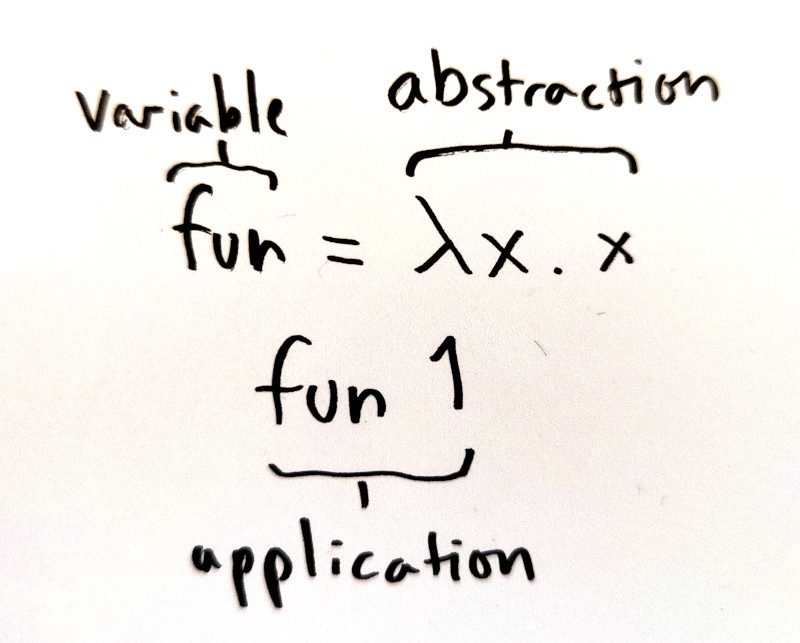 variable abstraction
fun = λx. x
fun 1
application